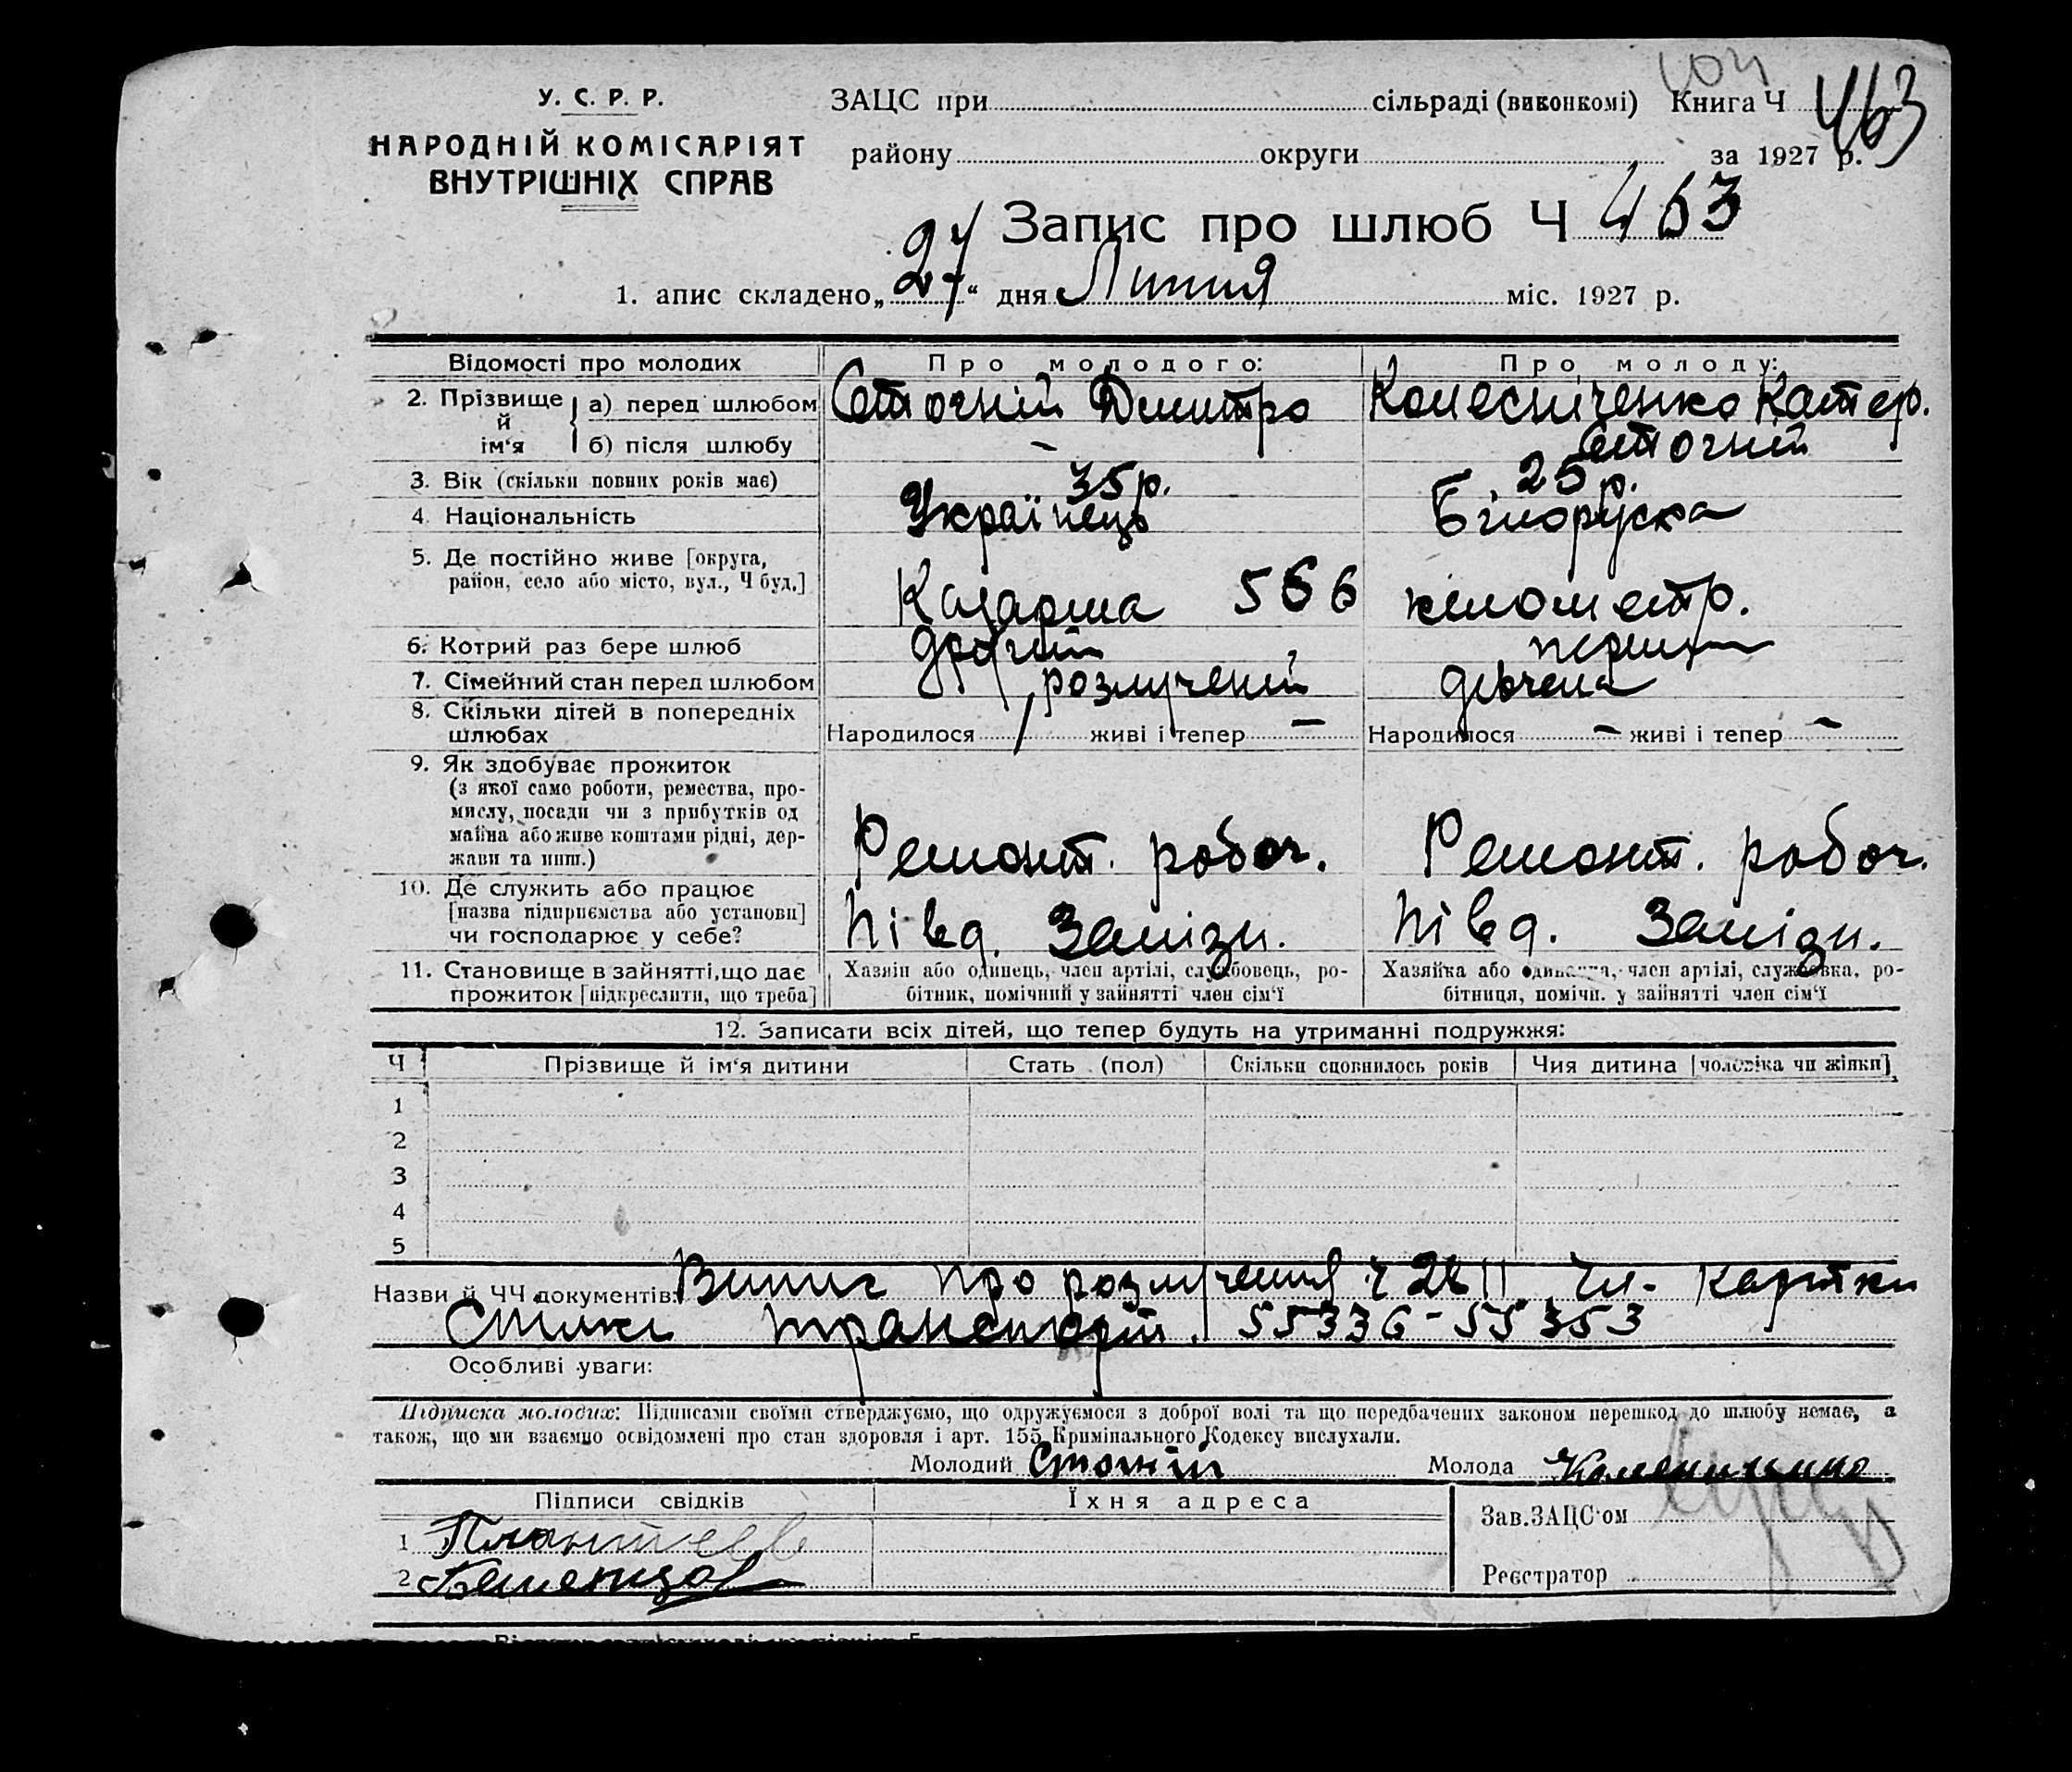 У. С. Р. Р.
НАРОДНІЙ КОМІСАРІЯТ
ВНУТРІШНІХ СПРАВ
ЗАЦС при сільраді (виконкомі) Книга Ч 463
району округи за 1927 р.
Запис про шлюб Ч 463
1. апис складено „27“ дня Липня міс. 1927 р.
Відомості про молодих Про молодого: Про молоду:
2. Прізвище й ім‘я а) перед шлюбом Стогній Дмитро Колесніченко Катер.
б) після шлюбу – Стогній
3. Вік (скільки повних років має) 35 р. 25 р.
4. Національність Українець Білоруска
5. Де постійно живе [округа, район, село або місто, вул., Ч буд.] Казарма 566 кілометр.
6. Котрий раз бере шлюб другий перший
7. Сімейний стан перед шлюбом розлучений дівчена
8. Скільки дітей в попередніх шлюбах Народилося 1 живі і тепер – Народилося – живі і тепер –
9. Як здобуває прожиток
(з якої само роботи, ремества, про-
мислу, посади чи з прибутків од
майна або живе коштами рідні, дер-
жави та инш.) Ремонт. робоч. Ремонт. робоч.
10. Де служить або працює
[назва підприємства або установи]
чи господарює у себе? Півд. Залізн. Півд. Залізн.
11. Становище в зайнятті, що дає прожиток [підкреслити, що треба]
Хазяїн або одинець, член артілі, службовець, ро-
бітник, помічний у зайнятті член сім‘ї
Хазяйка або одиначка, член артілі, службовка, ро-
бітниця, помічн. у зайнятті член сім‘ї
12. Записати всіх дітей, що тепер будуть на утриманні подружжя:
Ч Прізвище й ім‘я дитини Стать (пол) Скільки сповнилось років Чия дитина [чоловіка чи жінки]
1
2
3
4
5
Назви й ЧЧ документів: Випис про розлучення Ч чл. картки
Спилки транспорт. 55336-55353
Особливі уваги:
Підписка молодих: Підписами своїми стверджуємо, що одружуємося з доброї волі та що передбачених законом перешкод до шлюбу немає, а
також, що ми взаємно освідомлені про стан здоровля і арт. 155 Кримінального Кодексу вислухали.
Молодий Стогній Молода
Підписи свідків Їхня адреса Зав. ЗАЦС‘ом
1
2 Реєстратор